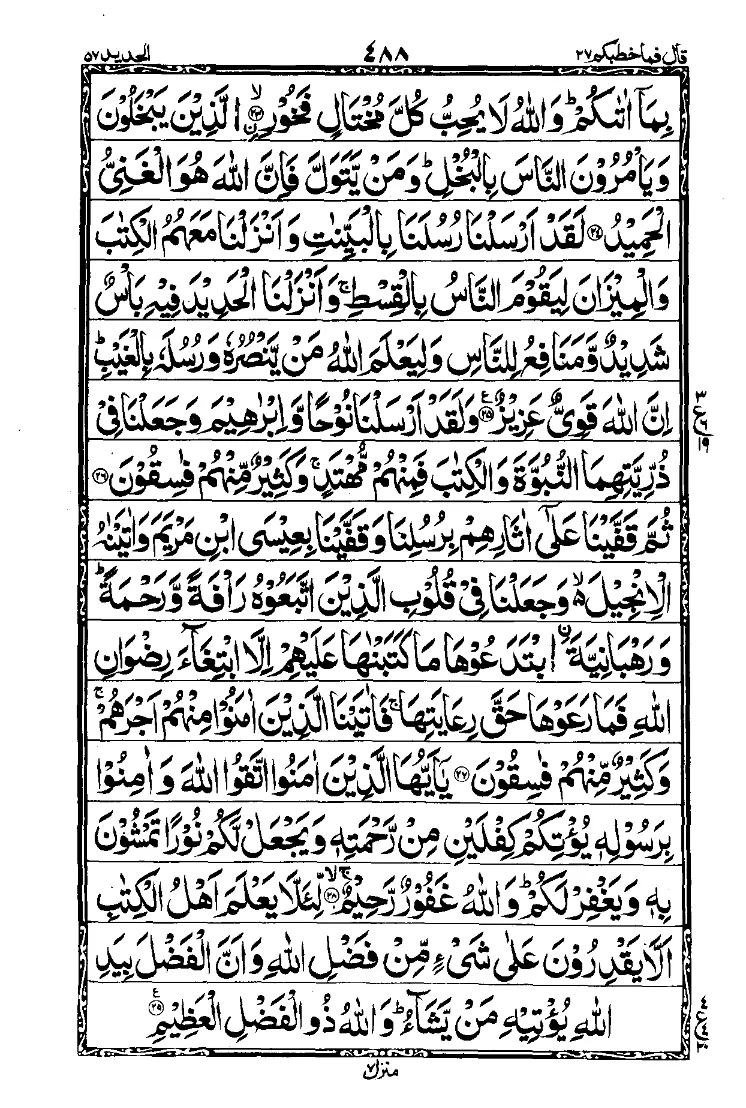 قال فما خطبكم ٢٧ ٤٨٨ الحديد ٥٧
بِمَاۤ اٰتٰىكُمْ ؕ وَاللّٰهُ لَا يُحِبُّ كُلَّ مُخْتَالٍ فَخُوْرِ ۙ﴿۲۳﴾ ن الَّذِيْنَ يَبْخَلُوْنَ
وَيَاْمُرُوْنَ النَّاسَ بِالْبُخْلِ ؕ وَمَنْ يَّتَوَلَّ فَاِنَّ اللّٰهَ هُوَ الْغَنِىُّ
الْحَمِيْدُ ﴿۲۴﴾ لَقَدْ اَرْسَلْنَا رُسُلَنَا بِالْبَيِّنٰتِ وَاَنْزَلْنَا مَعَهُمُ الْكِتٰبَ
وَالْمِيْزَانَ لِيَقُوْمَ النَّاسُ بِالْقِسْطِ ۚ وَاَنْزَلْنَا الْحَدِيْدَ فِيْهِ بَاْسٌ
شَدِيْدٌ وَّمَنَافِعُ لِلنَّاسِ وَلِيَعْلَمَ اللّٰهُ مَنْ يَّنْصُرُهٗ وَرُسُلَهٗ بِالْغَيْبِ ؕ
اِنَّ اللّٰهَ قَوِىٌّ عَزِيْزٌ ﴿۲۵﴾ ع وَلَقَدْ اَرْسَلْنَا نُوْحًا وَّاِبْرٰهِيْمَ وَجَعَلْنَا فِىْ
ذُرِّيَّتِهِمَا النُّبُوَّةَ وَالْكِتٰبَ فَمِنْهُمْ مُّهْتَدٍ ۚ وَكَثِيْرٌ مِّنْهُمْ فٰسِقُوْنَ ﴿۲۶﴾
ثُمَّ قَفَّيْنَا عَلٰٓى اٰثَارِهِمْ بِرُسُلِنَا وَقَفَّيْنَا بِعِيْسَى ابْنِ مَرْيَمَ وَاٰتَيْنٰهُ
الْاِنْجِيْلَ ۙ وَجَعَلْنَا فِىْ قُلُوْبِ الَّذِيْنَ اتَّبَعُوْهُ رَاْفَةً وَّرَحْمَةً ؕ
وَرَهْبَانِيَّةَ ن ابْتَدَعُوْهَا مَا كَتَبْنٰهَا عَلَيْهِمْ اِلَّا ابْتِغَآءَ رِضْوَانِ
اللّٰهِ فَمَا رَعَوْهَا حَقَّ رِعَايَتِهَا ۚ فَاٰتَيْنَا الَّذِيْنَ اٰمَنُوْا مِنْهُمْ اَجْرَهُمْ ۚ
وَكَثِيْرٌ مِّنْهُمْ فٰسِقُوْنَ ﴿۲۷﴾ يٰۤاَيُّهَا الَّذِيْنَ اٰمَنُوا اتَّقُوا اللّٰهَ وَاٰمِنُوْا
بِرَسُوْلِهٖ يُؤْتِكُمْ كِفْلَيْنِ مِنْ رَّحْمَتِهٖ وَيَجْعَلْ لَّكُمْ نُوْرًا تَمْشُوْنَ
بِهٖ وَيَغْفِرْ لَكُمْ ؕ وَاللّٰهُ غَفُوْرٌ رَّحِيْمٌ ۚۙ﴿۲۸﴾ لِّئَلَّا يَعْلَمَ اَهْلُ الْكِتٰبِ
اَلَّا يَقْدِرُوْنَ عَلٰى شَىْءٍ مِّنْ فَضْلِ اللّٰهِ وَاَنَّ الْفَضْلَ بِيَدِ
اللّٰهِ يُؤْتِيْهِ مَنْ يَّشَآءُ ؕ وَاللّٰهُ ذُو الْفَضْلِ الْعَظِيْمِ ﴿۲۹﴾ ع
منزل ٧